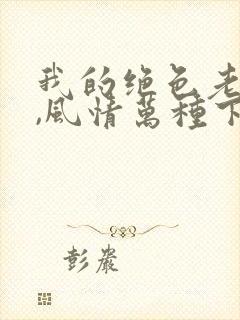 我的绝色老
,风情萬種下
彭嚴